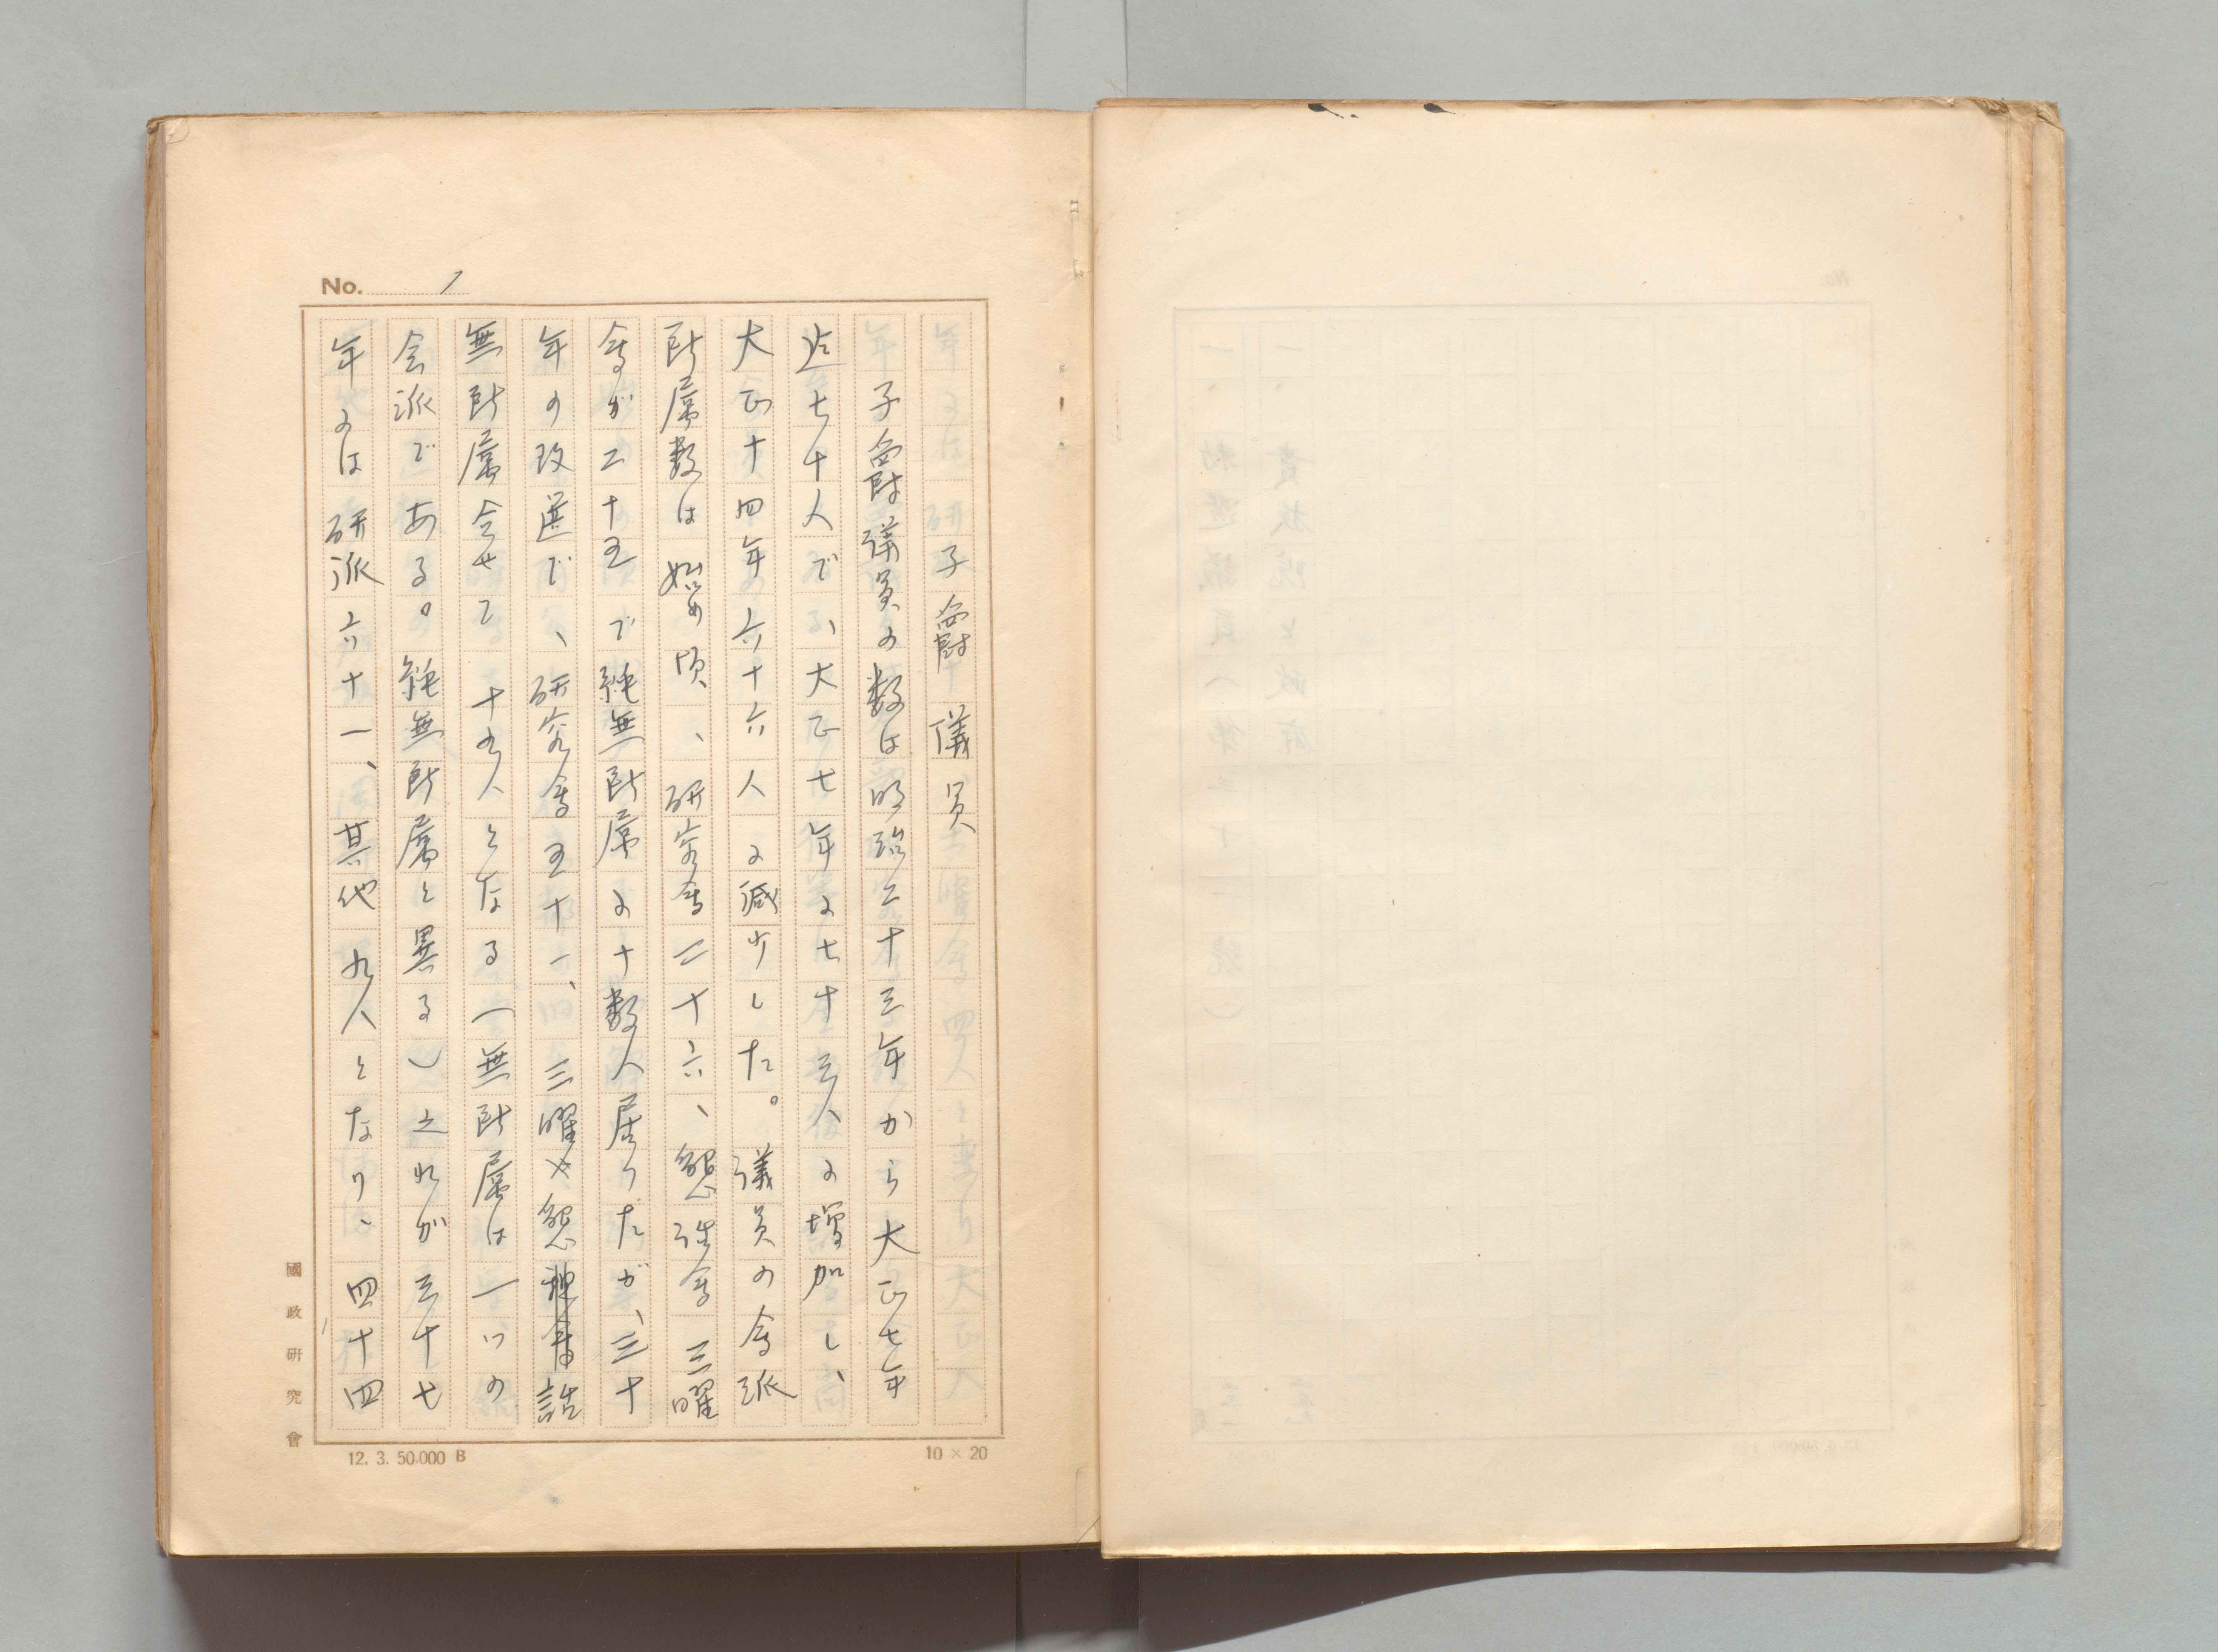 No. 1
子爵議員
子爵議員の数は明治二十三年から大正七年
迄七十人で、大正七年に七十三人に増加し、
大正十四年六十六人に減少した。議員の会派
所属数は始めの頃、研究會二十六、懇話會三曜
會が二十五で純無所属に十数人居りたが、三十
年の改選で、研究會五十一、三曜懇話
無所属合せて十九人となる(無所属は一つの
会派である。純無所属と異る)之れが三十七
年には研派六十一、其他九人となり、四十四
國政研究會
12. 3. 50.000 B
10 × 20